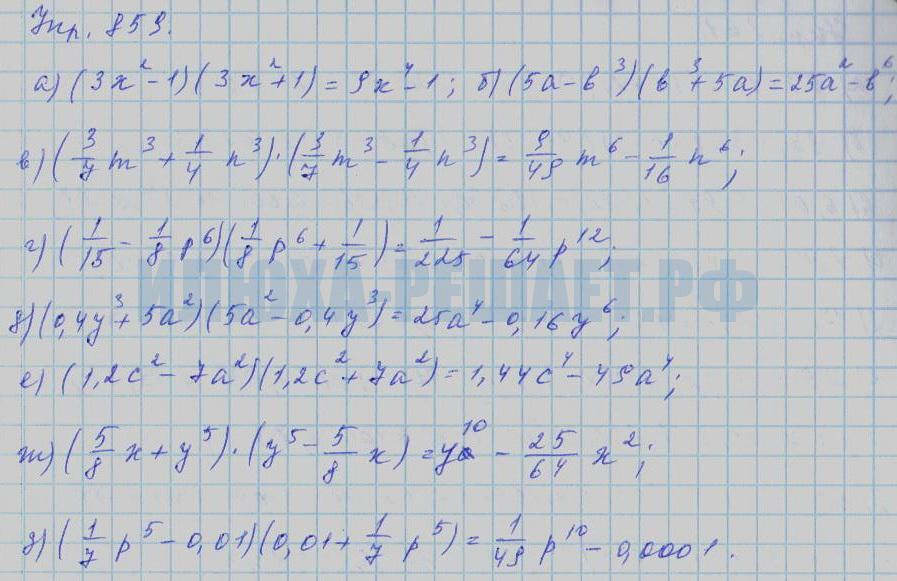 Упр. 859.
а) (3x² - 1)(3x² + 1) = 9x⁴ - 1; б) (5a - b³)(b³ + 5a) = 25a² - b⁶;
в) (3/7 m³ + 1/4 n³) · (3/7 m³ - 1/4 n³) = 9/49 m⁶ - 1/16 n⁶;
г) (1/15 - 1/8 p⁶)(1/8 p⁶ + 1/15) = 1/225 - 1/64 p¹²;
ИЛЮХА-РЕШАЕТ.РФ
д) (0,4y³ + 5a²)(5a² - 0,4y³) = 25a⁴ - 0,16y⁶;
е) (1,2c² - 7a²)(1,2c² + 7a²) = 1,44c⁴ - 49a⁴;
ж) (5/8 x + y⁵) · (y⁵ - 5/8 x) = y¹⁰ - 25/64 x²;
з) (1/7 p⁵ - 0,01)(0,01 + 1/7 p⁵) = 1/49 p¹⁰ - 0,0001.